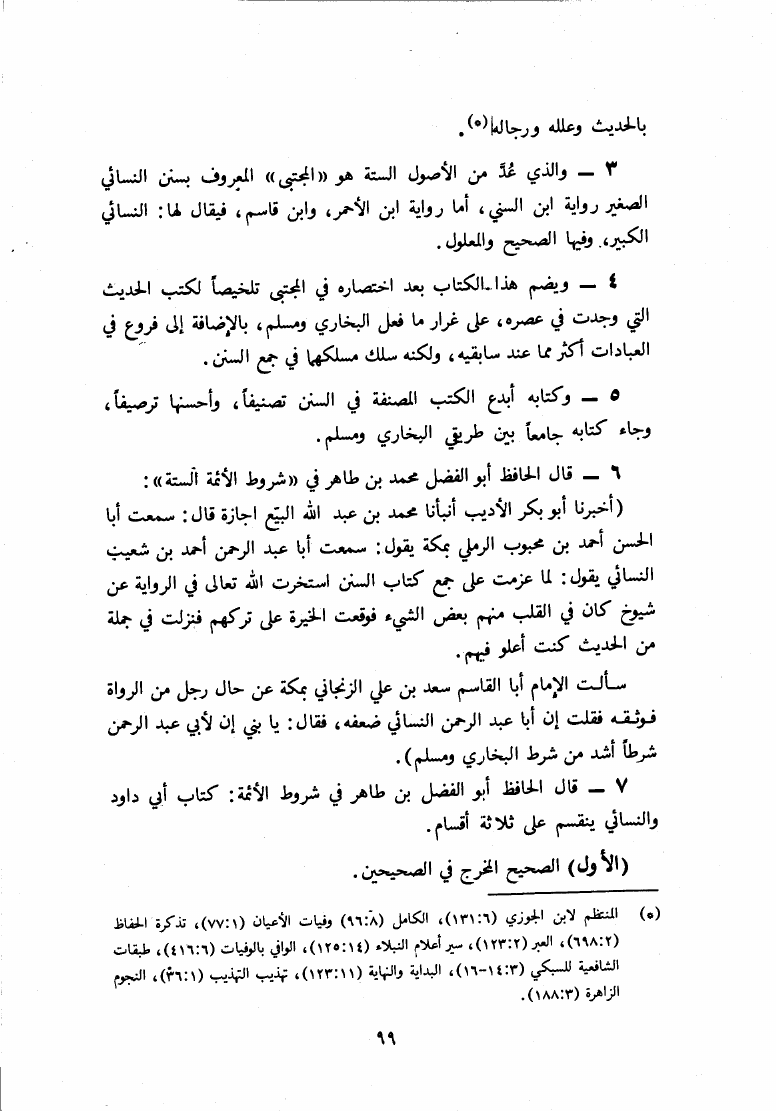 بالحديث وعلله ورجاله(٥).
٣ ــ والذي عُدَّ من الأصول الستة هو «المجتبى» المعروف بسنن النسائي
الصغير رواية ابن السني، أما رواية ابن الأحمر، وابن قاسم، فيقال لها: النسائي
الكبير، وفيها الصحيح والمعلول.
٤ ــ ويضم هذا الكتاب بعد اختصاره في المجتبى تلخيصاً لكتب الحديث
التي وجدت في عصره، على غرار ما فعل البخاري ومسلم، بالإضافة إلى فروع في
العبادات أكثر مما عند سابقيه، ولكنه سلك مسلكهما في جمع السنن.
٥ ــ وكتابه أبدع الكتب المصنفة في السنن تصنيفاً، وأحسنها ترصيفاً،
وجاء كتابه جامعاً بين طريقي البخاري ومسلم.
٦ ــ قال الحافظ أبو الفضل محمد بن طاهر في «شروط الأئمة الستة»:
(أخبرنا أبو بكر الأديب أنبأنا محمد بن عبد الله البيّع اجازة قال: سمعت أبا
الحسن أحمد بن محبوب الرملي بمكة يقول: سمعت أبا عبد الرحمن أحمد بن شعيب
النسائي يقول: لما عزمت على جمع كتاب السنن استخرت الله تعالى في الرواية عن
شيوخ كان في القلب منهم بعض الشيء فوقعت الخيرة على تركهم فنزلت في جملة
من الحديث كنت أعلو فيهم.
سألت الإمام أبا القاسم سعد بن علي الزنجاني بمكة عن حال رجل من الرواة
فوثقه فقلت إن أبا عبد الرحمن النسائي ضعفه، فقال: يا بني إن لأبي عبد الرحمن
شرطاً أشد من شرط البخاري ومسلم).
٧ ــ قال الحافظ أبو الفضل بن طاهر في شروط الأئمة: كتاب أبي داود
والنسائي ينقسم على ثلاثة أقسام.
(الأول) الصحيح المخرج في الصحيحين.
(٥) المنتظم لابن الجوزي (٦:١٣١)، الكامل (٨:٩٦) وفيات الأعيان (١:٧٧)، تذكرة الحفاظ
(٢:٦٩٨)، العبر (٢:١٢٣)، سير أعلام النبلاء (١٤:١٢٥)، الوافي بالوفيات (٦:٤١٦)، طبقات
الشافعية للسبكي (٣:١٤-١٦)، البداية والنهاية (١١:١٢٣)، تهذيب التهذيب (١:٣٦)، النجوم
الزاهرة (٣:١٨٨).
٩٩